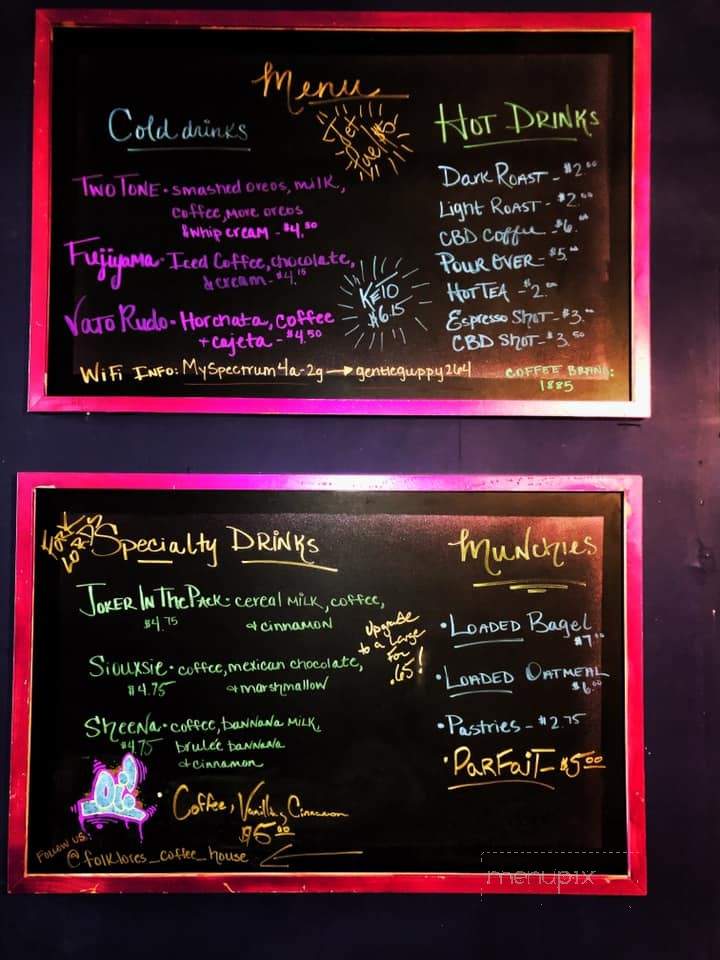 Menu
Cold drinks
Jet
Fuel $5
Two Tone • smashed oreos, milk,
coffee, more oreos
& whip cream - $4.50
Fujiyama • Iced Coffee, chocolate,
& cream - $4.15
Vato Rudo • Horchata, coffee
+ cajeta - $4.50
KETO
$6.15
Hot Drinks
Dark Roast - $2.00
Light Roast - $2.00
CBD Coffee - $6.00
Pour Over - $5.00
Hot Tea - $2.00
Espresso Shot - $3.00
CBD Shot - $3.50
WiFi Info: MySpectrum4a-2g → gentleguppy264
Coffee Brand:
1885
Specialty Drinks
Joker In The Pack • cereal milk, coffee,
$4.75 & cinnamon
Siouxsie • coffee, mexican chocolate,
$4.75 & marshmallow
Sheena • coffee, bannana milk,
$4.75 brulée bannana
& cinnamon
upgrade
to a large
for
.65!
Oi!
• Coffee, Vanilla, Cinnamon
$5.00
Follow us:
@folklores_coffee_house
Munchies
• Loaded Bagel
$7.00
• Loaded Oatmeal
$6.00
• Pastries - $2.75
• Parfait - $5.00
menupix